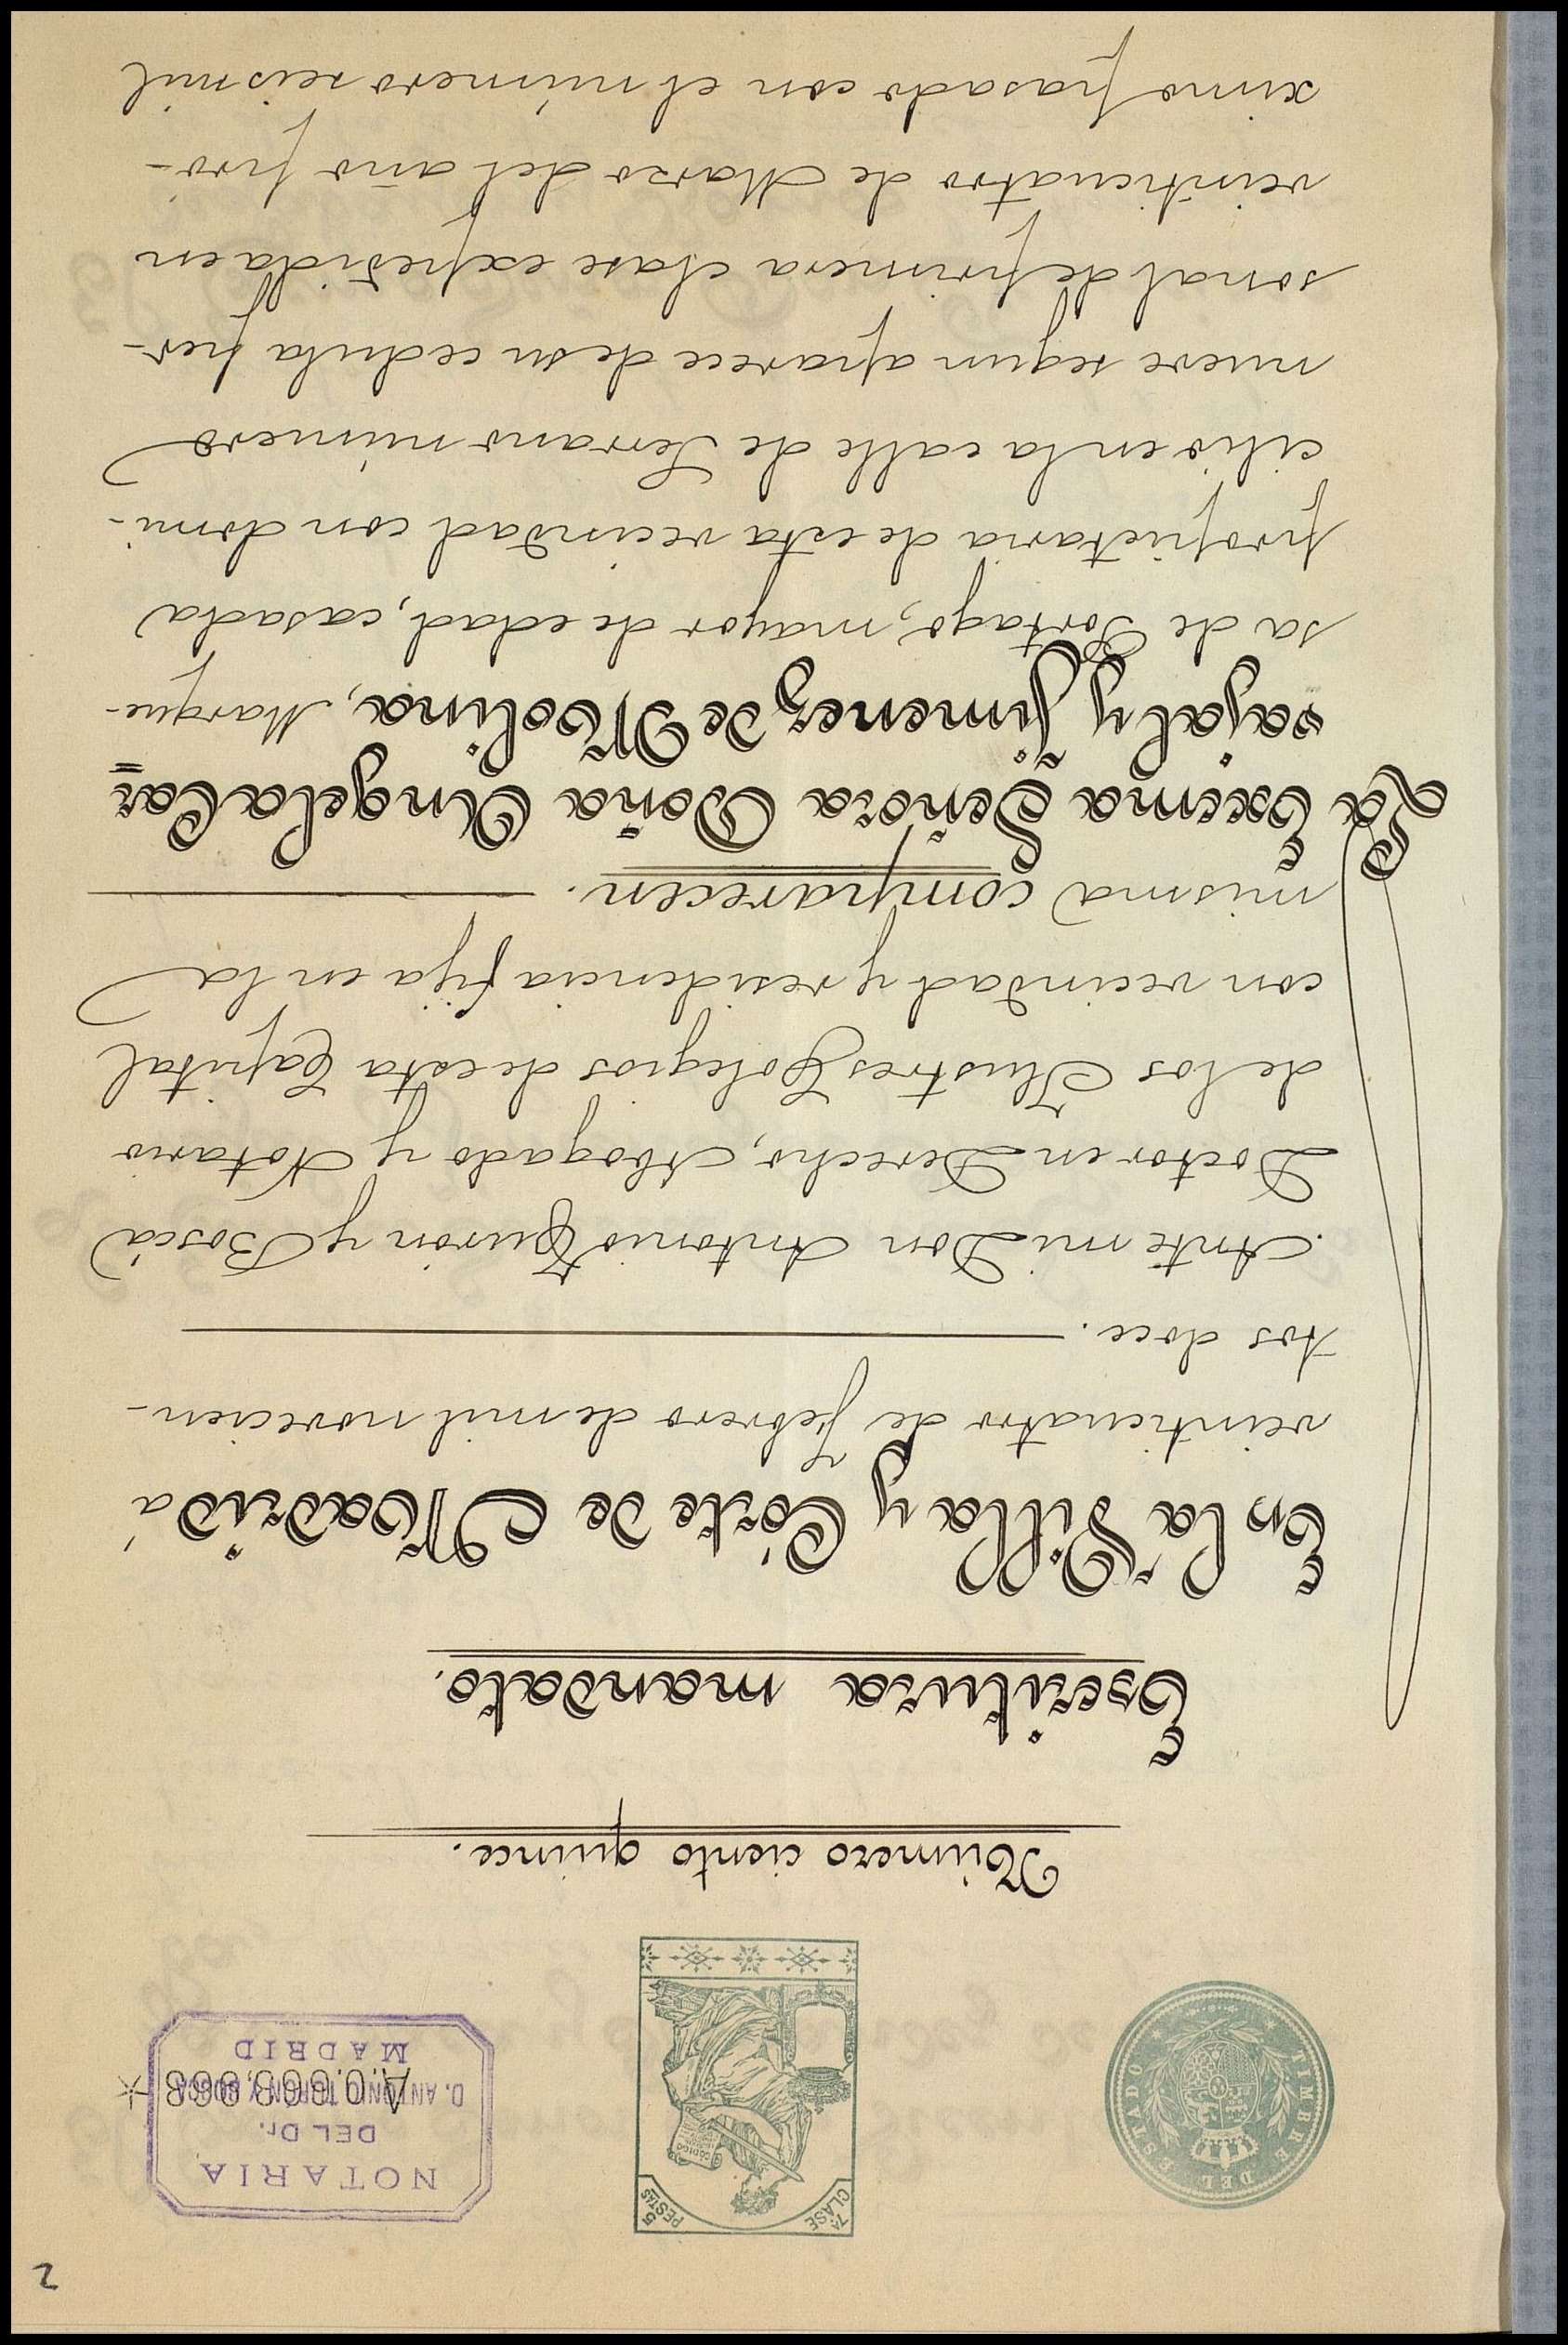 2
TIMBRE DEL ESTADO
7ª CLASE
5 PESTAS
NOTARIA
DEL Dr.
D. ANTONIO TURÓN Y BOSCÁ
MADRID
Número ciento quince.
Escritura mandato.
En la Villa y Córte de Madrid á
veinticuatro de Febrero de mil novecien-
tos doce.
Ante mi Don Antonio Turón y Boscá
Doctor en Derecho, Abogado y Notario
de los Ilustres Colegios de esta Capital
con vecindad y residencia fija en la
misma comparecen.
La Excma Señora Doña Angela Car
vajal y Jimenez de Molina, Marque-
sa de Portago, mayor de edad, casada
propietaria de esta vecindad con domi-
cilio en la calle de Serrano número
nueve segun aparece de su cedula per-
sonal de primera clase expedida en
veinticuatro de Marzo del año pró-
ximo pasado con el número seis mil